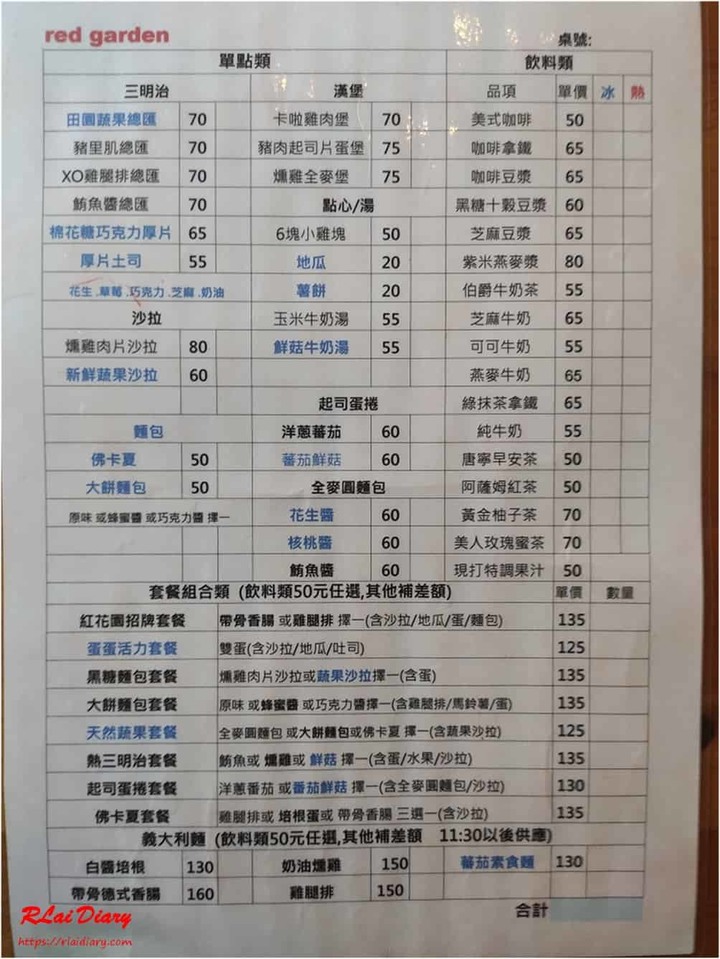 red garden
桌號:
單點類 飲料類
三明治 漢堡 品項 單價 冰 熱
田園蔬果總匯 70 卡啦雞肉堡 70 美式咖啡 50
豬里肌總匯 70 豬肉起司片蛋堡 75 咖啡拿鐵 65
XO雞腿排總匯 70 燻雞全麥堡 75 咖啡豆漿 65
鮪魚醬總匯 70 點心/湯 黑糖十穀豆漿 60
棉花糖巧克力厚片 65 6塊小雞塊 50 芝麻豆漿 65
厚片土司 55 地瓜 20 紫米燕麥漿 80
花生 .草莓 .巧克力 .芝麻 .奶油 薯餅 20 伯爵牛奶茶 55
沙拉 玉米牛奶湯 55 芝麻牛奶 65
燻雞肉片沙拉 80 鮮菇牛奶湯 55 可可牛奶 55
新鮮蔬果沙拉 60 燕麥牛奶 65
起司蛋捲 綠抹茶拿鐵 65
麵包 洋蔥蕃茄 60 純牛奶 55
佛卡夏 50 蕃茄鮮菇 60 唐寧早安茶 50
大餅麵包 50 全麥圓麵包 阿薩姆紅茶 50
原味 或蜂蜜醬 或巧克力醬 擇一 花生醬 60 黃金柚子茶 70
核桃醬 60 美人玫瑰蜜茶 70
鮪魚醬 60 現打特調果汁 50
套餐組合類 (飲料類50元任選,其他補差額) 單價 數量
紅花園招牌套餐 帶骨香腸 或雞腿排 擇一(含沙拉/地瓜/蛋/麵包) 135
蛋蛋活力套餐 雙蛋(含沙拉/地瓜/吐司) 125
黑糖麵包套餐 燻雞肉片沙拉或蔬果沙拉擇一(含蛋) 135
大餅麵包套餐 原味 或蜂蜜醬 或巧克力醬擇一(含雞腿排/馬鈴薯/蛋) 135
天然蔬果套餐 全麥圓麵包 或大餅麵包或佛卡夏 擇一(含蔬果沙拉) 125
熱三明治套餐 鮪魚或 燻雞或 鮮菇 擇一(含蛋/水果/沙拉) 135
起司蛋捲套餐 洋蔥蕃茄 或蕃茄鮮菇 擇一(含全麥圓麵包/沙拉) 130
佛卡夏套餐 雞腿排或 培根蛋或 帶骨香腸 三選一(含沙拉) 135
義大利麵 (飲料類50元任選,其他補差額 11:30以後供應)
白醬培根 130 奶油燻雞 150 蕃茄素食麵 130
帶骨德式香腸 160 雞腿排 150
合計
RLai Diary
https://rlaidiary.com